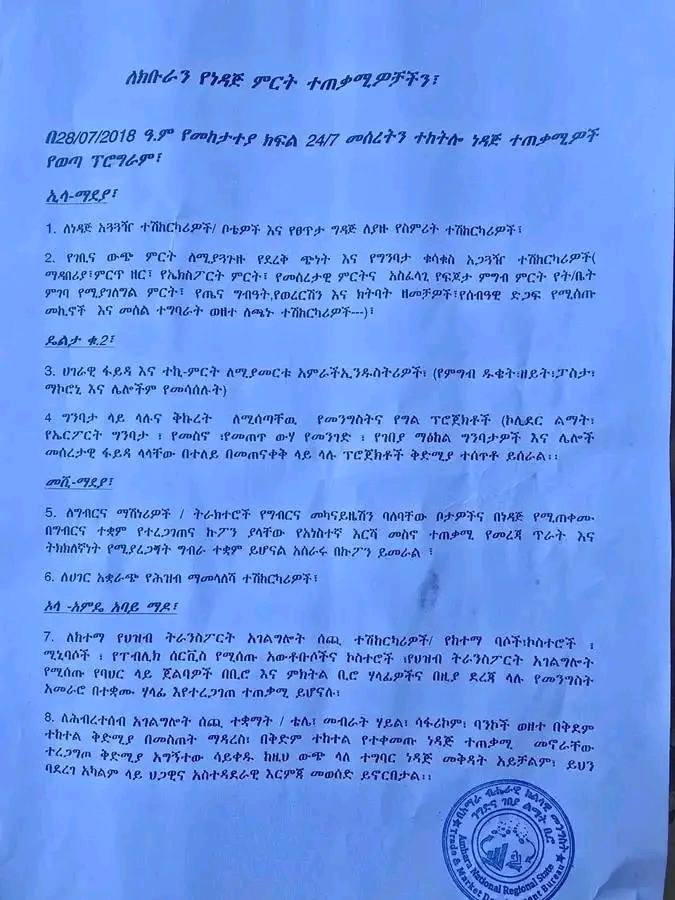 ለክቡራን የነዳጅ ምርት ተጠቃሚዎቻችን፣
በ28/07/2018 ዓ.ም የመከታተያ ክፍል 24/7 መሰረትን ተከትሎ ነዳጅ ተጠቃሚዎች
የወጣ ፕሮግራም፣
ኢላ-ማደያ፣
1. ለነዳጅ አጓጓዥ ተሽከርካሪዎች/ ቦቴዎች እና የፀጥታ ግዳጅ ለያዙ የስምሪት ተሽከርካሪዎች፣
2. የገቢና ውጭ ምርት ለሚያጓጉዙ የደረቅ ጭነት እና የግንባታ ቁሳቁስ አጋጓዥ ተሽከርካሪዎች(
ማዳበሪያ፣ምርጥ ዘር፣ የኤክስፖርት ምርት፣ የመሰረታዊ ምርትና አስፈላጊ የፍጆታ ምግብ ምርት የት/ቤት
ምገባ የሚያገለግል ምርት፣ የጤና ግብዓት,የወረርሽን እና ክትባት ዘመቻዎች፣የሰብዓዊ ድጋፍ የሚሰጡ
መኪኖች እና መስል ተግባራት ወዘተ ለጫኑ ተሽከርካሪዎች---)፣
ዴልታ ቁ.2፣
3. ሀገራዊ ፋይዳ እና ተኪ-ምርት ለሚያመርቱ አምራችኢንዱስትሪዎች፣ (የምግብ ዱቄት፡ዘይት፡ፓስታ፣
ማኮሮኒ እና ሌሎችም የመሳሰሉት)
4 ግንባታ ላይ ላሉና ትኩረት ለሚሰጣቸዉ የመንግስትና የግል ፕሮጀክቶች (ኮሊደር ልማት፣
የኤርፖርት ግንባታ ፣ የመስኖ ፡የመጠጥ ውሃ የመንገድ ፣ የገበያ ማዕከል ግንባታዎች እና ሌሎች
መሰረታዊ ፋይዳ ላላቸው በተለይ በመጠናቀቅ ላይ ላሉ ፕሮጀክቶች ቅድሚያ ተሰጥቶ ይሰራል፡፡
መሺ-ማደያ፣
5. ለግብርና ማሽነሪዎች / ትራክተሮች የግብርና መካናይዜሽን ባለባቸው ቦታዎችና በነዳጅ የሚጠቀሙ
በግብርና ተቋም የተረጋገጠና ኩፖን ያላቸው የአነስተኛ እርሻ መስኖ ተጠቃሚ የመረጃ ጥራት እና
ትክክለኛነት የሚያረጋግጥ ግብራ ተቋም ይሆናል አሰራሩ በኩፖን ይመራል ፣
6. ለሀገር አቋራጭ የሕዝብ ማመላለሻ ተሽከርካሪዎች፣
ኦላ -አምዴ አባይ ማዶ፣
7. ለከተማ የህዝብ ትራንስፖርት አገልግሎት ሰጪ ተሽከርካሪዎች/ የከተማ ባሶች፡ኮስተሮች ፣
ሚኒባሶች ፣ የፐብሊክ ሰርቪስ የሚሰጡ አውቶቡሶችና ኮስተሮች ፡የህዝብ ትራንስፖርት አገልግሎት
የሚሰጡ የባህር ላይ ጀልባዎች በቢሮ እና ምክትል ቢሮ ሃላፊዎችና በዚያ ደረጃ ላሉ የመንግስት
አመራሮ በተቋሙ ሃላፊ እየተረጋገጠ ተጠቃሚ ይሆናሉ፣
8. ለሕብረተሰብ አገልግሎት ሰጪ ተቋማት / ቴሌ፣ መብራት ሃይል፣ ሳፋሪኮም፣ ባንኮች ወዘተ በቅደም
ተከተል ቅድሚያ በመስጠት ማዳረስ፣ በቅድም ተከተል የተቀመጡ ነዳጅ ተጠቃሚ መኖራቸው
ተረጋግጦ ቅድሚያ አግኝተው ሳይቀዱ ከዚህ ውጭ ላለ ተግባር ነዳጅ መቅዳት አይቻልም፣ ይህን
ባደረገ አካልም ላይ ህጋዊና አስተዳደራዊ እርምጃ መወሰድ ይኖርበታል፡፡
በአማራ ብሔራዊ ክልላዊ መንግስት
ንግድና ገበያ ልማት ቢሮ
Amhara National Regional State
Trade & Market Development Bureau